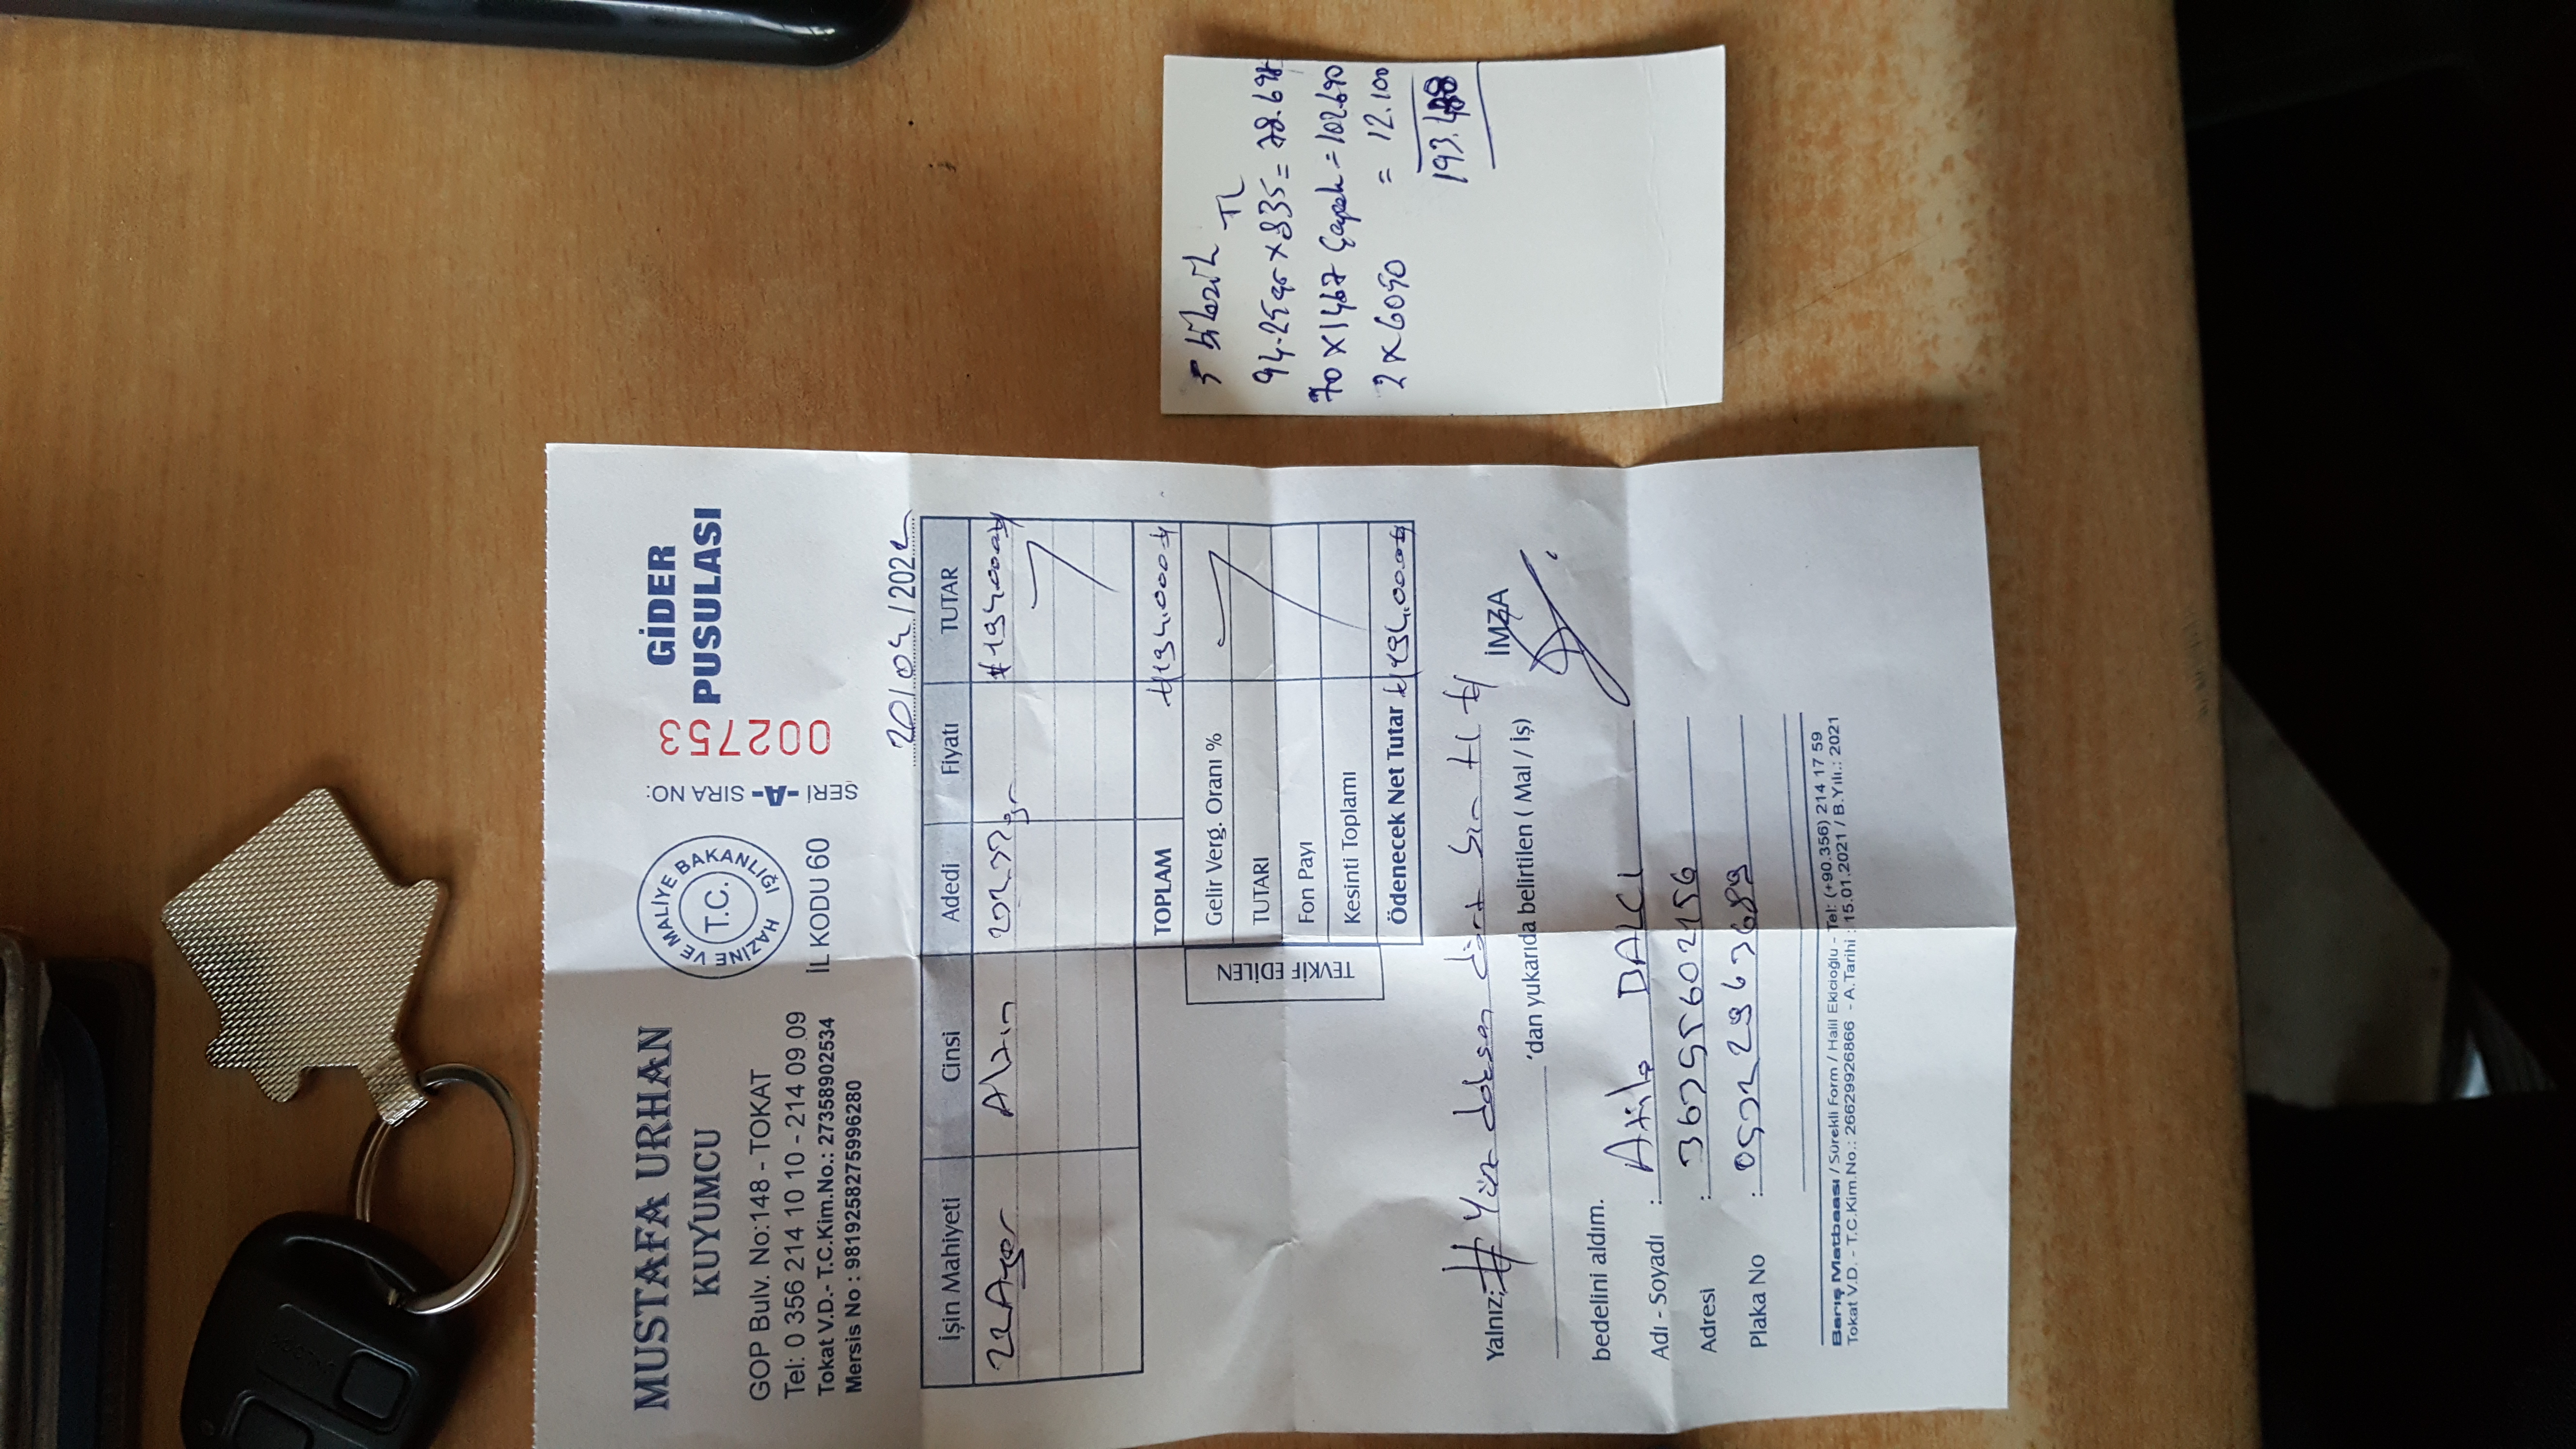 MUSTAFA URHAN
KUYUMCU
GOP Bulv. No:148 - TOKAT
Tel: 0 356 214 10 10 - 214 09 09
Tokat V.D.- T.C.Kim.No.: 27358902534
Mersis No : 9819258275996280
HAZİNE VE MALİYE BAKANLIĞI
T.C.
İL KODU 60
SERİ -A- SIRA NO:
002753
GİDER
PUSULASI
20/04/202
İşin Mahiyeti Cinsi Adedi Fiyatı TUTAR
22 Ayar Altın gr #194.000#
TOPLAM #194.000#
TEVKİF EDİLEN
Gelir Verg. Oranı %
TUTARI
Fon Payı
Kesinti Toplamı
Ödenecek Net Tutar #194.000#
Yalnız; # Yüz doksan dört bin tl #
İMZA
'dan yukarıda belirtilen ( Mal / İş)
bedelini aldım.
Adı - Soyadı : BALCI
Adresi :
Plaka No :
Barış Matbaası / Sürekli Form / Halil Ekicioğlu - Tel: (+90.356) 214 17 59
Tokat V.D. - T.C.Kim.No.: 26629926866 - A.Tarihi : 15.01.2021 / B.Yılı.: 2021
5 bilezik
TL
94.25 gr x 835 = 78.698
70 x 1467 Çeyrek = 102.690
2 x 6050 = 12.100
193.488